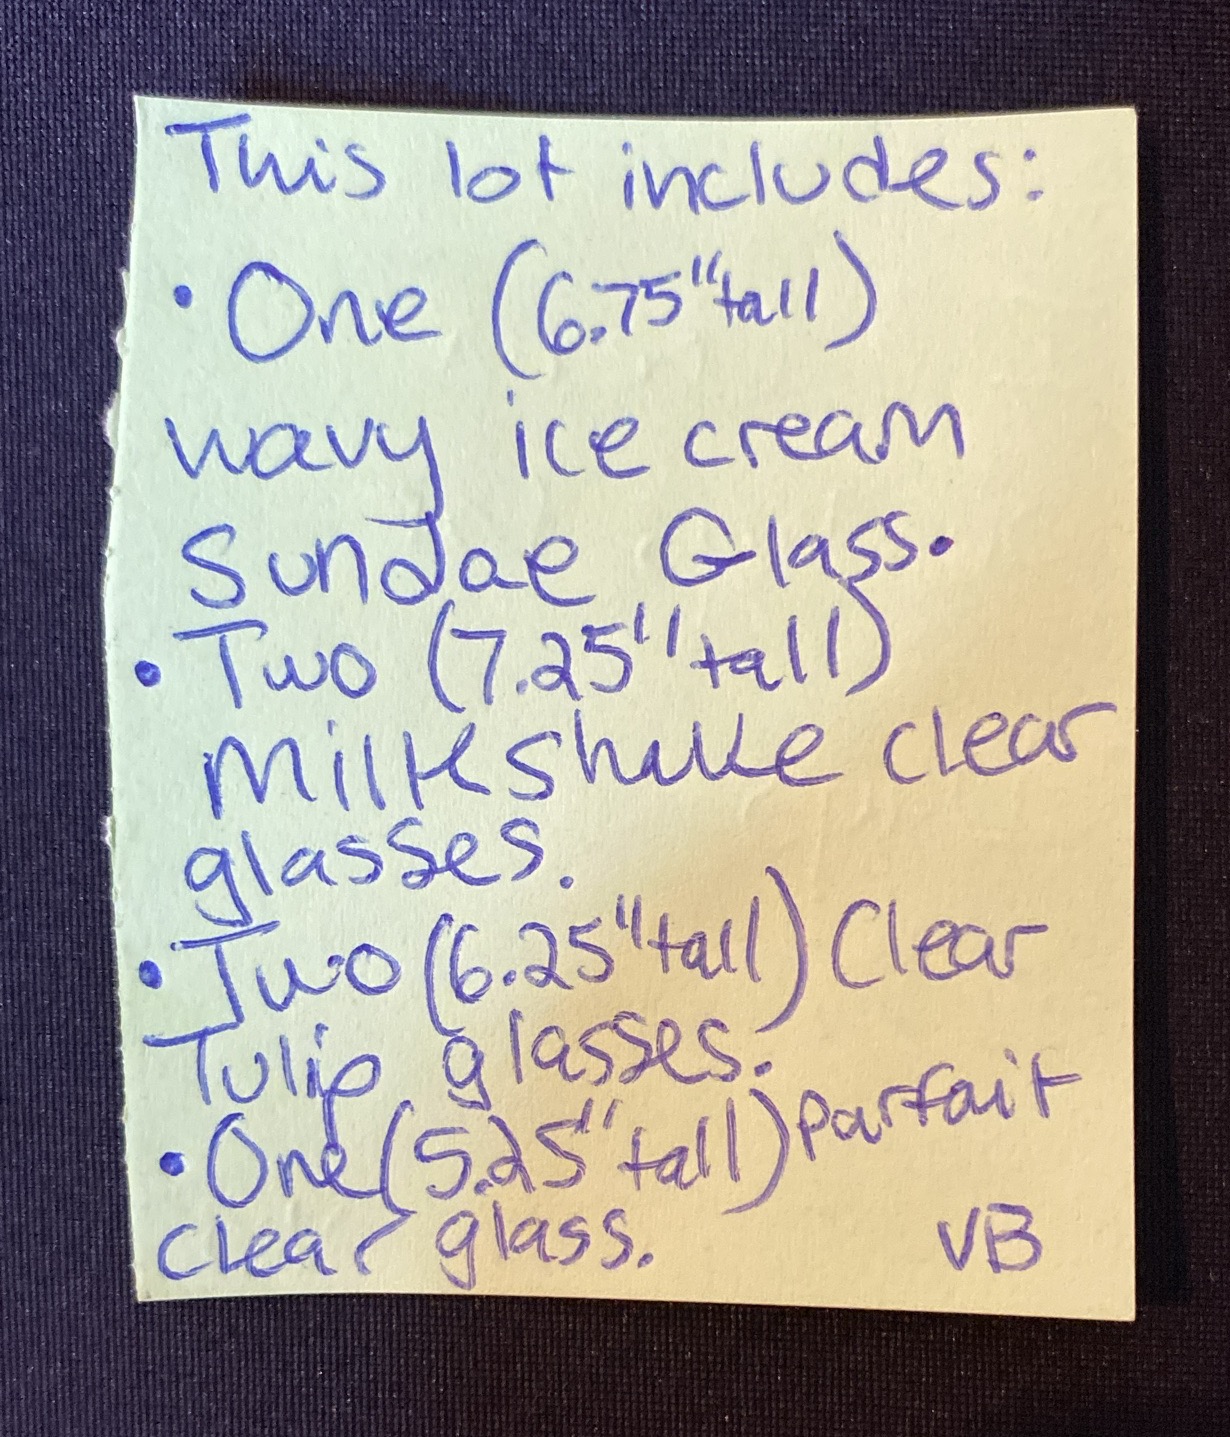 This lot includes:
• One (6.75" tall)
wavy ice cream
Sundae Glass.
• Two (7.25" tall)
Milkshake clear
glasses.
• Two (6.25" tall) Clear
Tulip glasses.
• One (5.25" tall) parfait
clear glass. VB